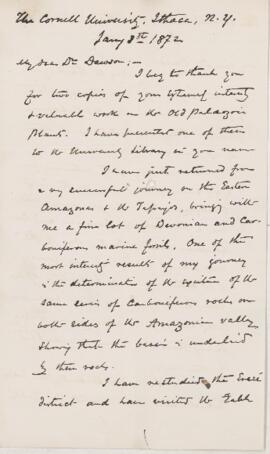 The Cornell University, Ithaca, N.Y.
Jany 8th 1872
My dear Dr. Dawson;—
I beg to thank you
for two copies of your interest
& valuable work on the Old Palaezoic
Plants. I have presented one of them
to the University Library in your name
I have just returned from
a very successful journey on the Eastern
Amazonas & the Tapajos, bringing with
me a fine lot of Devonian and Car-
boniferous marine fossils. One of the
most interesting results of my journey
is the determination of the existence of the
same series of Carboniferous rocks on
both sides of the Amazonian valley,
showing that the basin is underlaid
by these rocks.
I have restudied the Ereré
district and have visited the Table